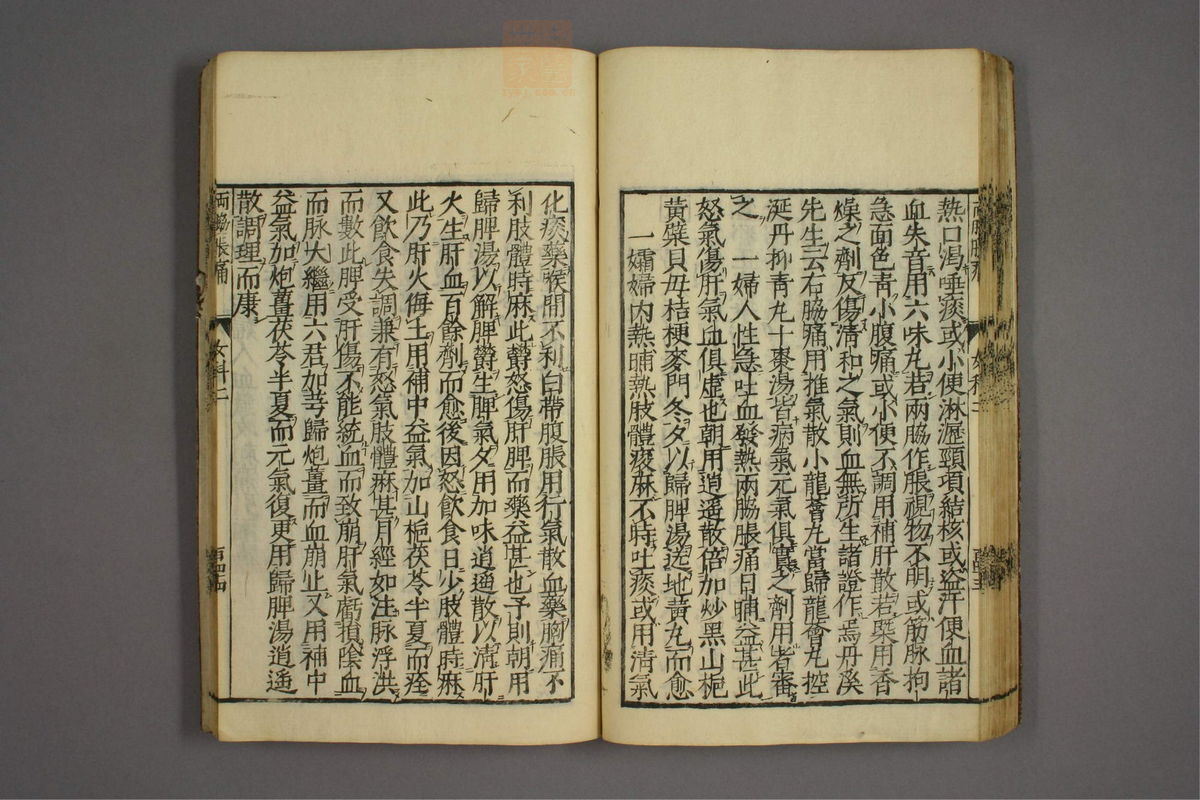 熱口渴唾痰或小便淋瀝頸項結核或盜汗便血諸
血失音用六味丸若兩脇作脹視物不明或筋脉拘
急面色青小腹痛或小便不調用補肝散若槩用香
燥之劑反傷清和之氣則血無所生諸證作焉丹溪
先生云右脇痛用推氣散小龍薈丸當歸龍薈丸控
涎丹抑青丸十棗湯皆病氣元氣俱實之劑用者審
之 一婦人性急吐血發熱兩脇脹痛日晡益甚此
怒氣傷肝氣血俱虛也朝用逍遥散倍加炒黑山梔
黃蘗貝母桔梗麥門冬夕以歸脾湯送地黃丸而愈
一孀婦内熱晡熱肢體痠麻不時吐痰或用清氣
化痰藥喉間不利白帶腹脹用行氣散血藥胸痛不
利肢體時麻此欝怒傷肝脾而藥益甚也予則朝用
歸脾湯以解脾欝生脾氣夕用加味逍遥散以清肝
火生肝血百餘劑而愈後因怒飲食日少肢體時麻
此乃肝火侮土用補中益氣加山梔茯苓半夏而痊
又飲食失調兼有怒氣肢體麻甚月經如注脉浮洪
而數此脾受肝傷不能統血而致崩肝氣虧損陰血
而脉大繼用六君加芎歸炮薑而血崩止又用補中
益氣加炮薑茯苓半夏而元氣復更用歸脾湯逍遥
散調理而康
両脇脹痛
女科二